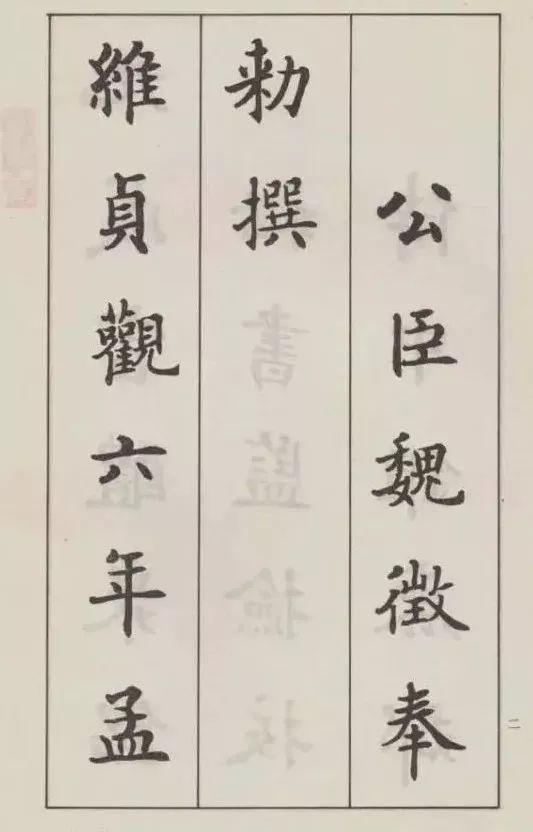 公臣魏徵奉
勑撰
維貞觀六年孟
二